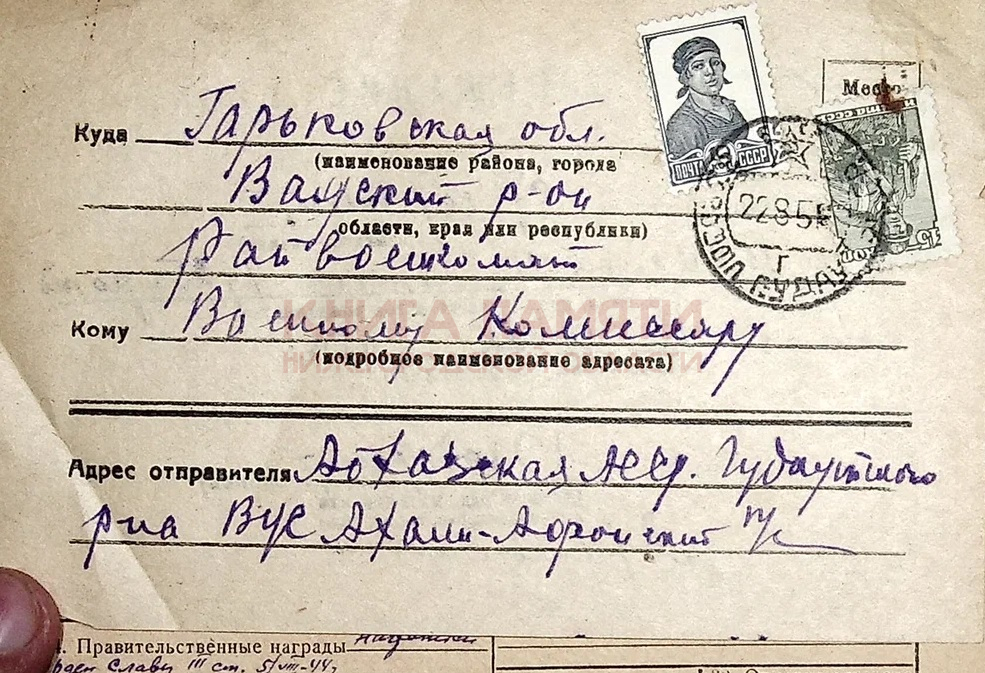 Место
ПОЧТА СССР
15
Куда Гарьковская обл.
(наименование района, города
Вадский р-он
области, края или республики)
Райвоенкомат
22 8 5
Кому Военкому Комиссару
КНИГА ПАМЯТИ
(подробное наименование адресата)
НИЖЕГОРОДСКОЙ ОБЛАСТИ
Адрес отправителя Абхазская АССР. Гудаутского
р-на ВУС Ахали-Афонский п/с
Правительственные награды
Славы III ст. 5/VIII-44г